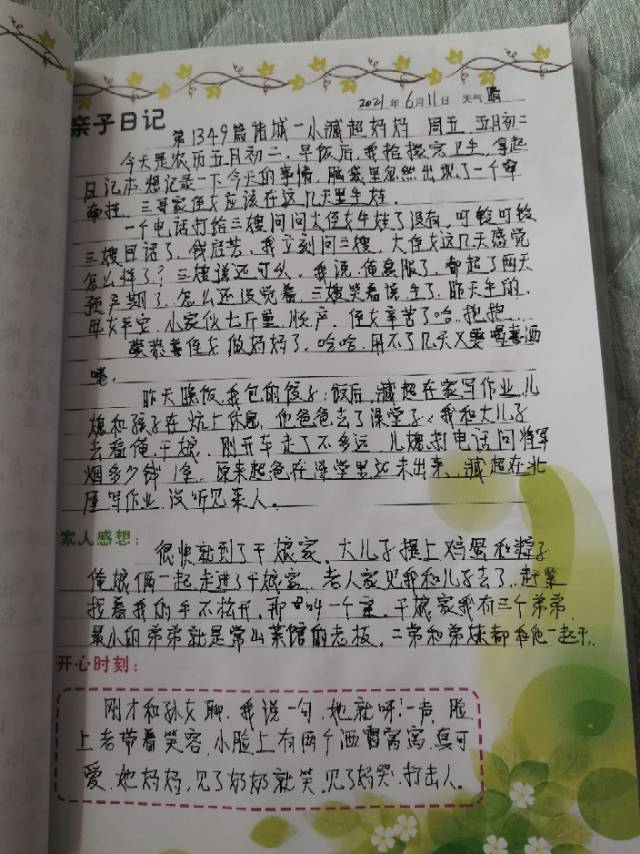 2021年6月11日 天气 晴
亲子日记
第1349篇诸城一小臧超妈妈 周五.五月初二
今天是农历五月初二.早饭后,我拾掇完卫生,拿起
日记本.想记录一下今天的事情.脑袋里忽然出现了一个
牵挂.三哥家侄女应该在这几天里生娃.
一个电话打给三嫂问问大侄女生娃了没有.可能可能
三嫂回话了.我立刻问三嫂.大侄女这几天感觉
怎么样了?三嫂说还可以.我说.俺衷服了.都超了两天
预产期了.怎么还没觉着.三嫂笑着说.生了.昨天生的.
母女平安.小家伙七斤重.顺产.侄女辛苦了哈.抱抱...
恭恭喜侄女做妈妈了.哈哈.用不了几天又要喝喜酒
喽.
昨天晚饭.我包的饺子;饭后.臧超在家写作业.儿
媳和孩子在炕上休息.他爸爸去了澡堂子.我和大儿子
去看俺干娘.刚开车走了不多远.儿媳打电话问将军
烟多少钱1盒.原来超爸在澡堂里还未出来.臧超在北
屋写作业.没听见来人.
家人感想:
很快就到了干娘家.大儿子提上鸡蛋和粽子
俺娘俩一起走进了干娘家.老人家见我和儿子去了.赶紧
拉着我的手不松开.那叫一个亲.干娘家我有三个弟弟
最小的弟弟就是常山菜馆的老板.二弟和弟妹都和他一起干.
开心时刻:
刚才和孙女聊.我说一句.她就呀!一声.脸
上老带着笑容.小脸上有两个酒窝窝.真可
爱.她妈妈.见了奶奶就笑.见了妈哭.打击人.